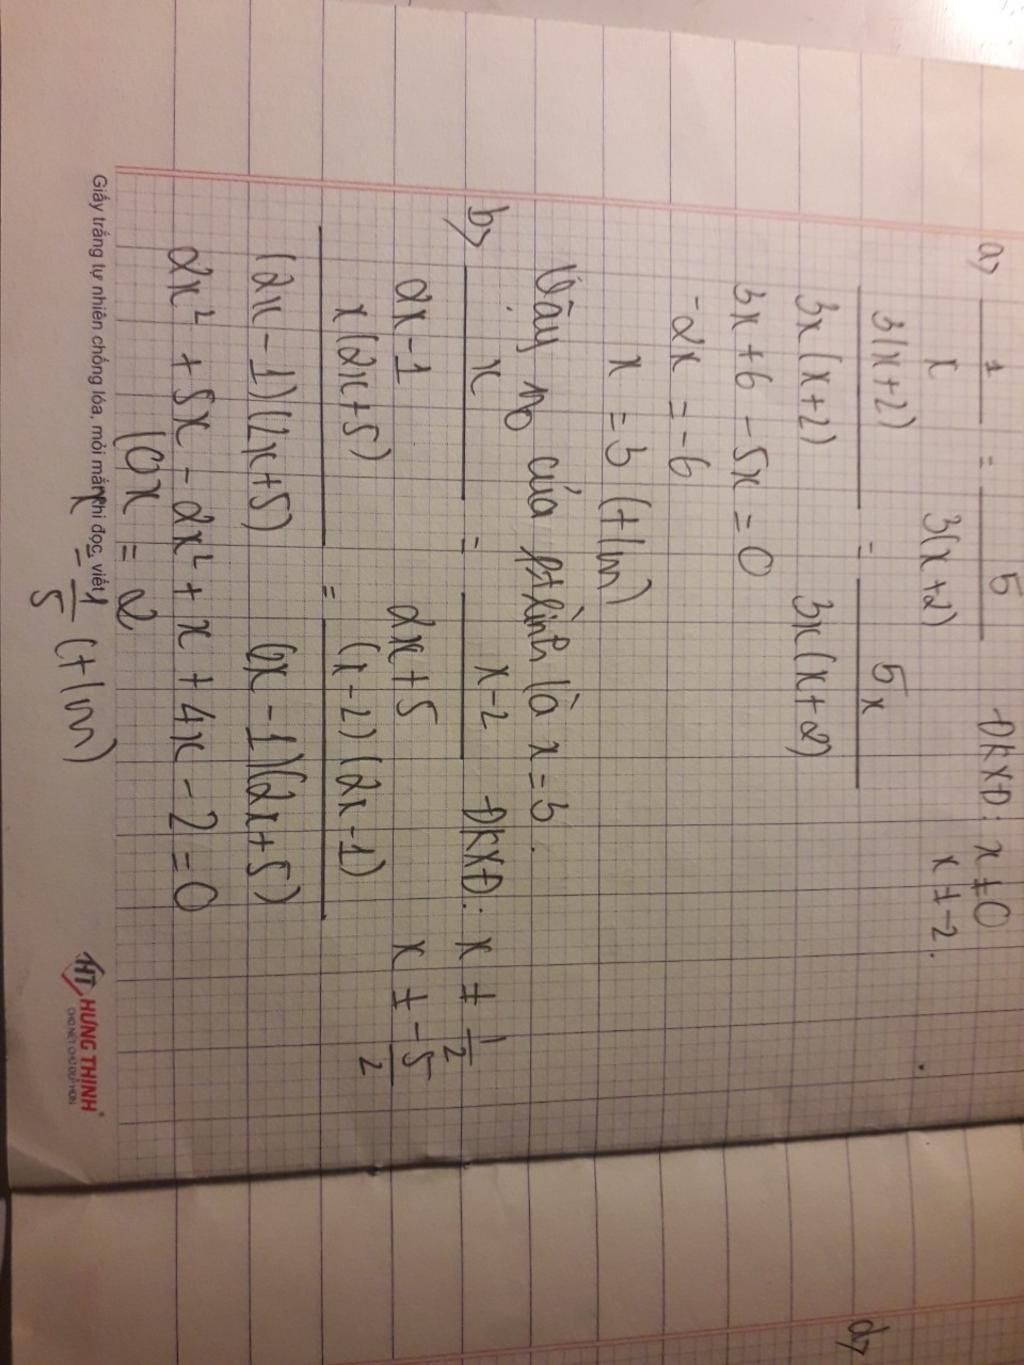 a) 1/x = 5/3(x+2) ĐKXĐ: x ≠ 0
x ≠ -2.
3(x+2)/3x(x+2) = 5x/3x(x+2)
3x + 6 - 5x = 0
-2x = -6
x = 3 (t/m)
Vậy no của ptrình là x = 3.
b) x/2x-1 = x-2/2x+5 ĐKXĐ: x ≠ 1/2
x ≠ -5/2
x(2x+5)/(2x-1)(2x+5) = (x-2)(2x-1)/(2x-1)(2x+5)
2x² + 5x - 2x² + x + 4x - 2 = 0
10x = 2
x = 1/5 (t/m)
Giấy trắng tự nhiên chống lóa, mỏi mắt khi đọc, viết
HT HƯNG THỊNH
d)